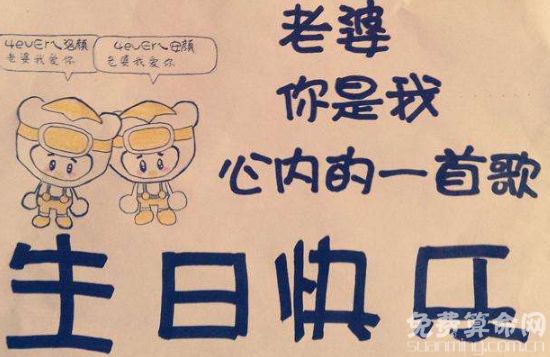 4evEr乀洛颜
老婆我爱你
4evEr乀安颜
老婆我爱你
老婆
你是我
心内的一首歌
生日快乐
免费算命网
suanming.com.cn